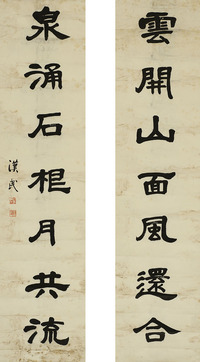 雲開山面風還合
泉涌石根月共流
漢民